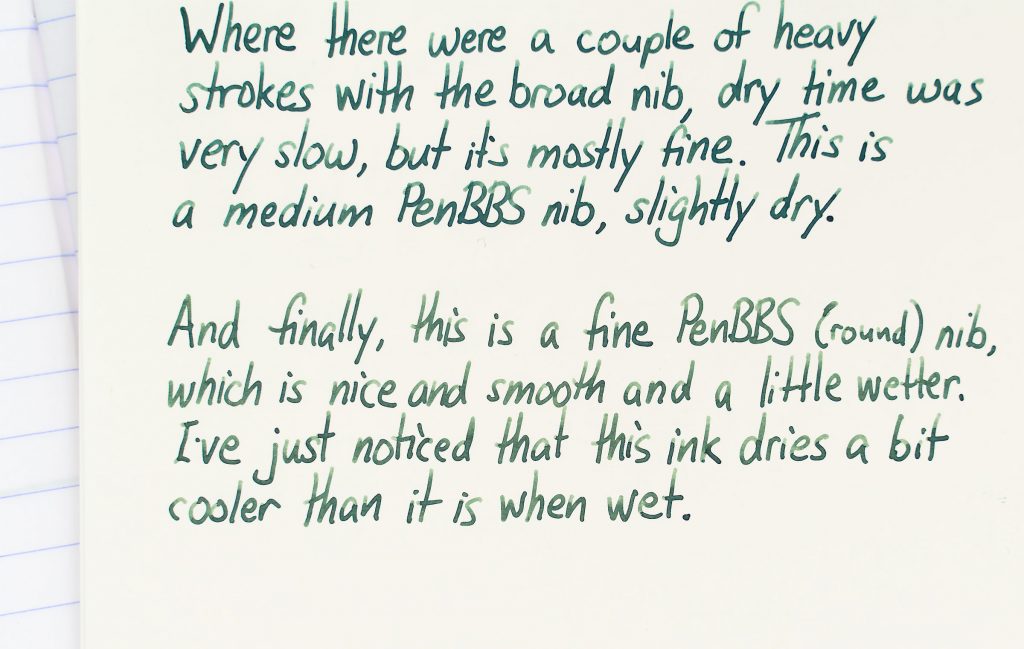 Where there were a couple of heavy
strokes with the broad nib, dry time was
very slow, but it's mostly fine. This is
a medium PenBBS nib, slightly dry.
And finally, this is a fine PenBBS (round) nib,
which is nice and smooth and a little wetter.
I've just noticed that this ink dries a bit
cooler than it is when wet.